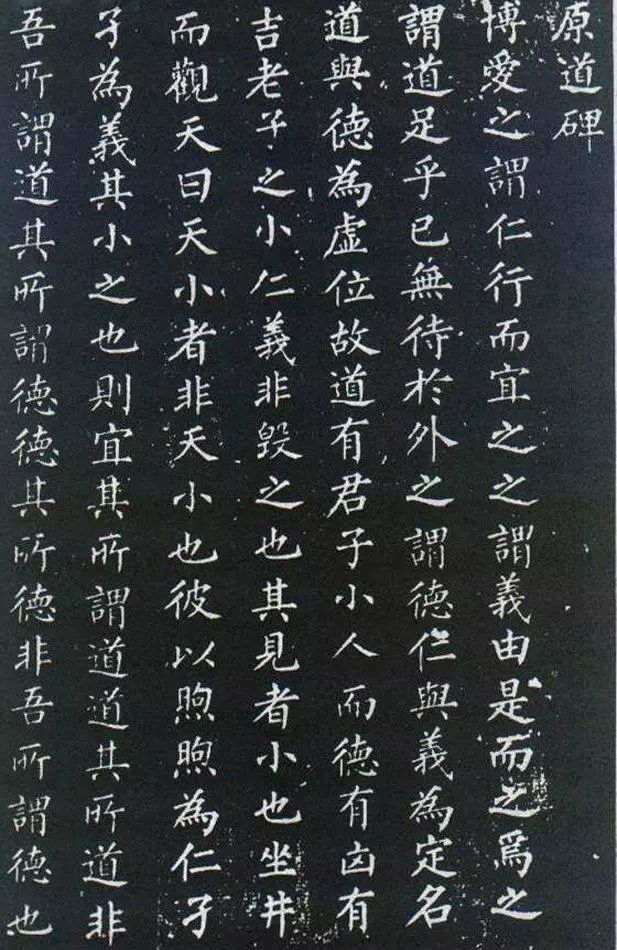 原道碑
博愛之謂仁行而宜之之謂義由是而之焉之
謂道足乎已無待於外之謂德仁與義為定名
道與德為虛位故道有君子小人而德有凶有
吉老子之小仁義非毀之也其見者小也坐井
而觀天曰天小者非天小也彼以煦煦為仁孑
孑為義其小之也則宜其所謂道道其所道非
吾所謂道其所謂德德其所德非吾所謂德也